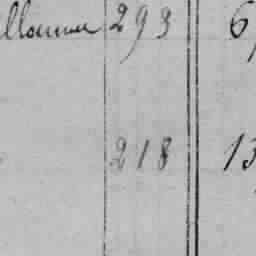 293 6
218 13